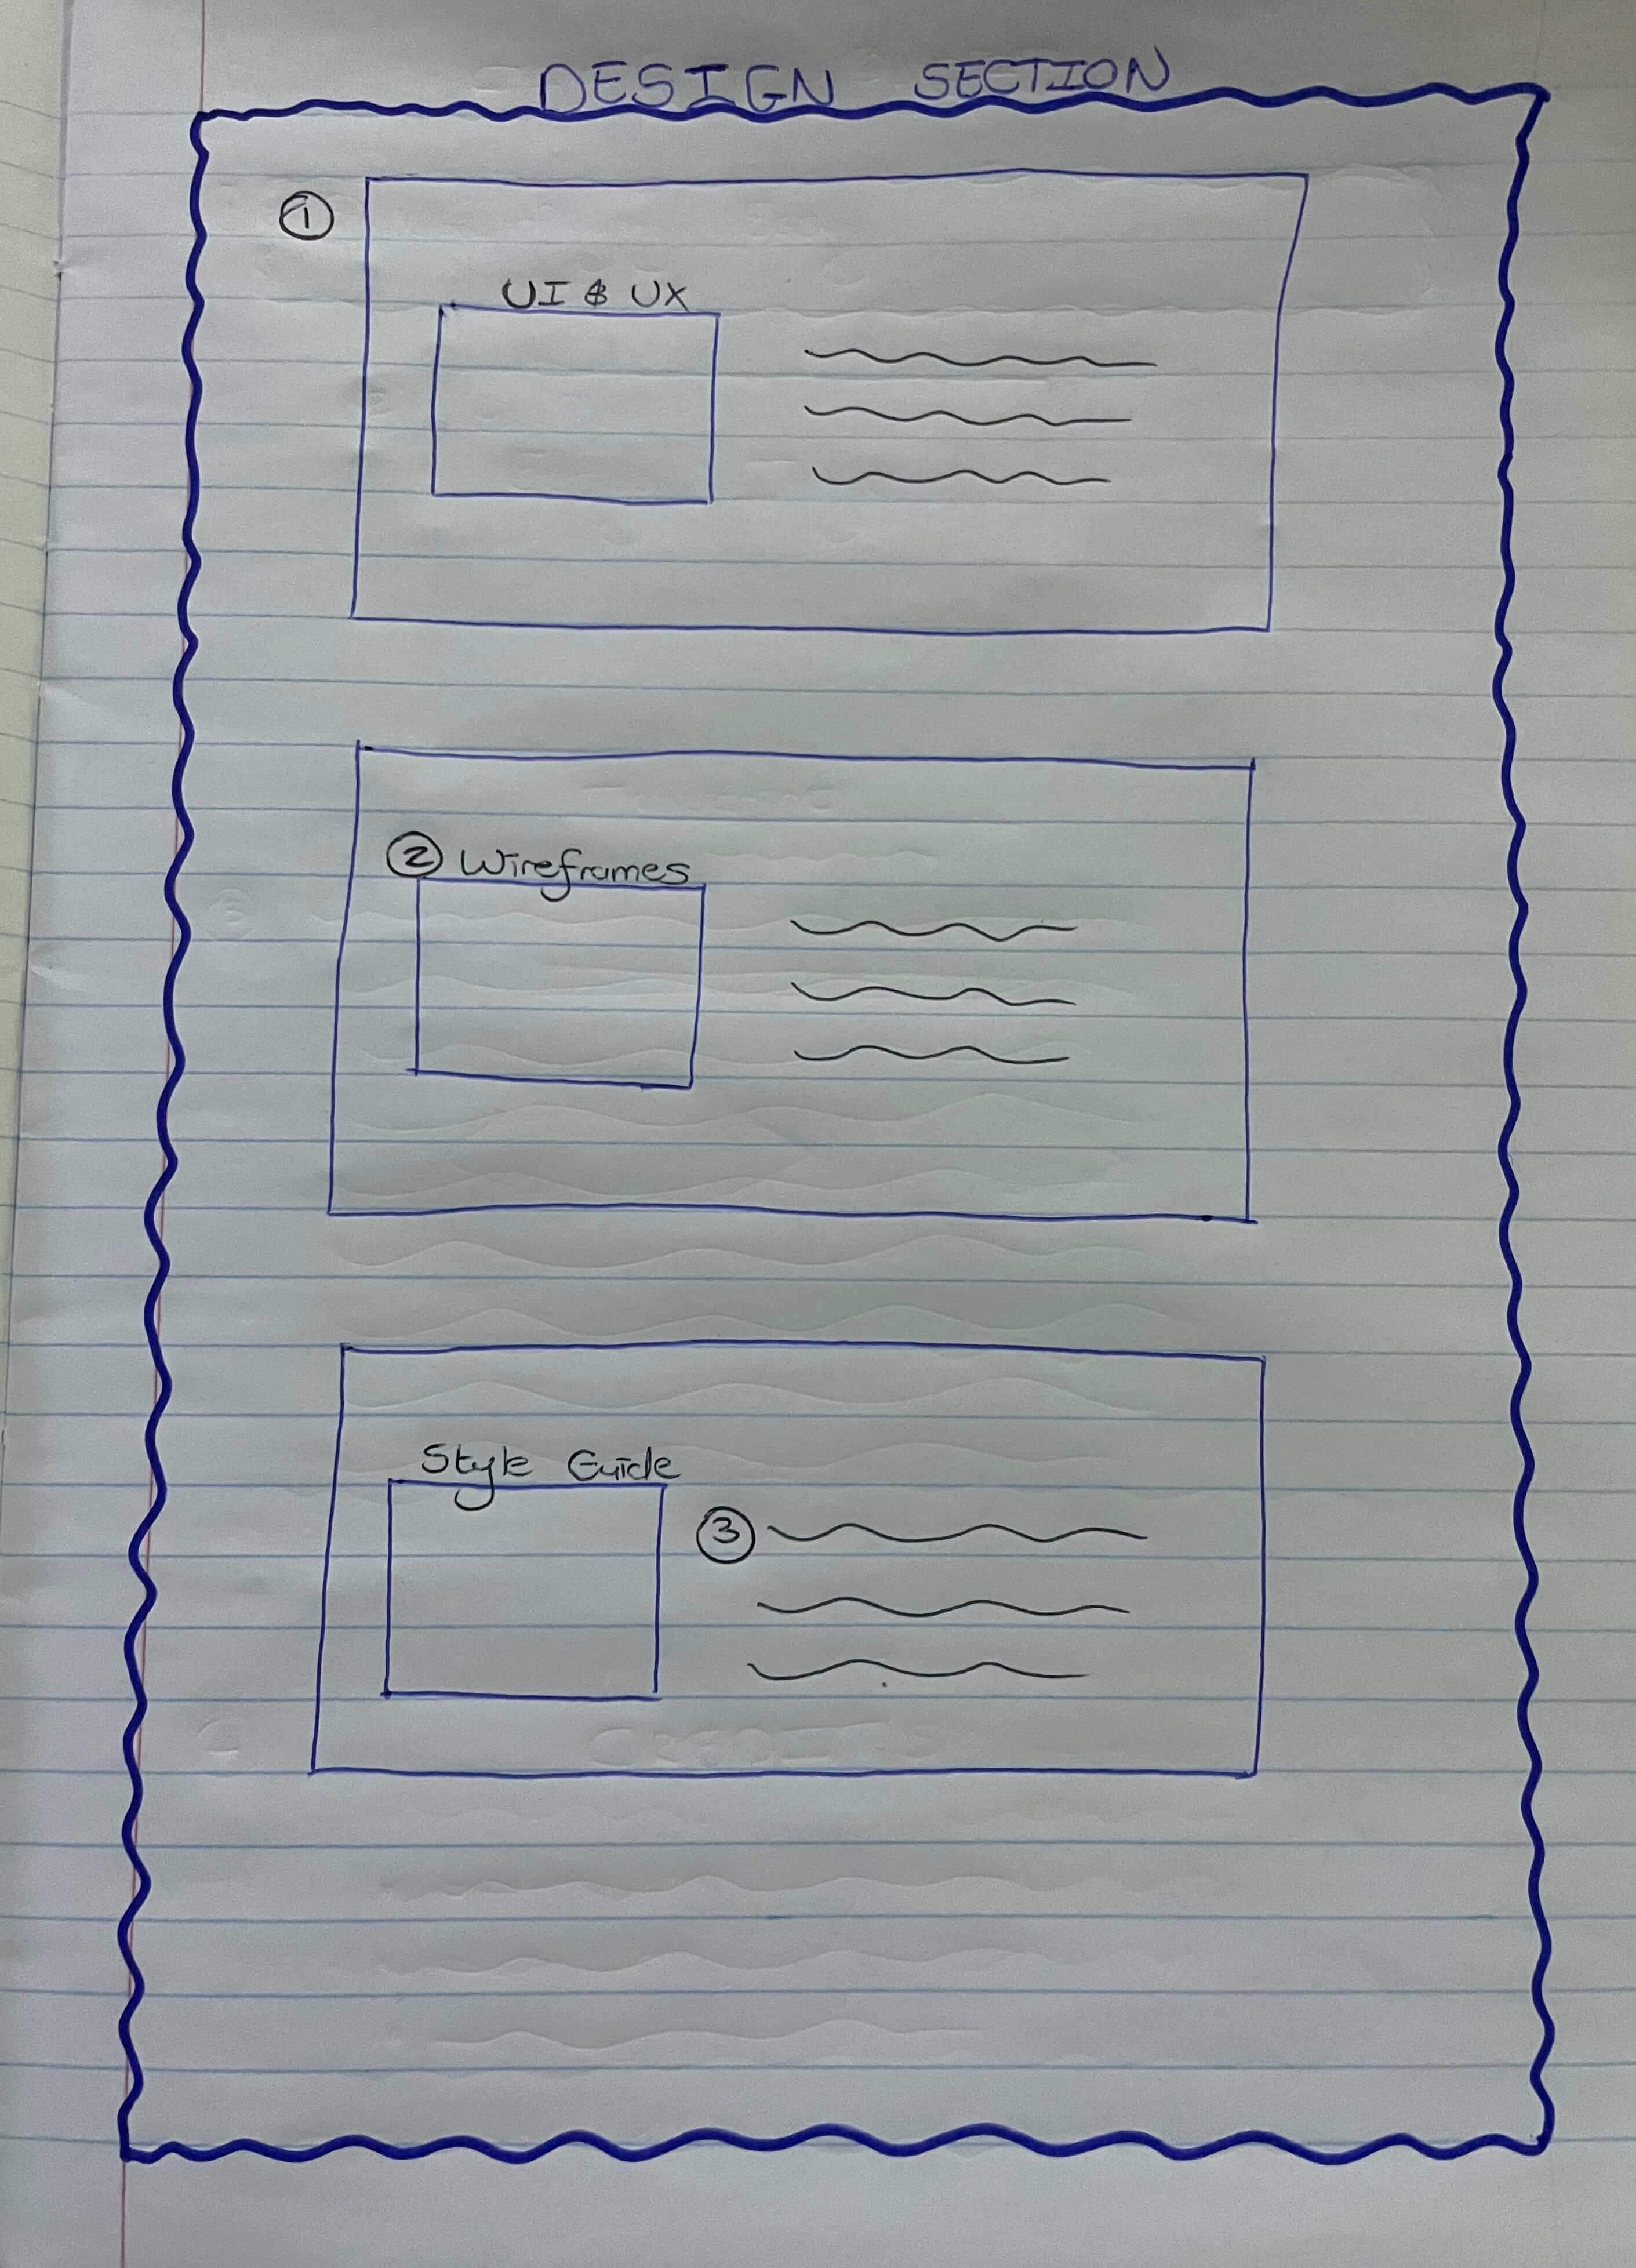 DESIGN SECTION
1
UI & UX
2 Wireframes
Style Guide
3